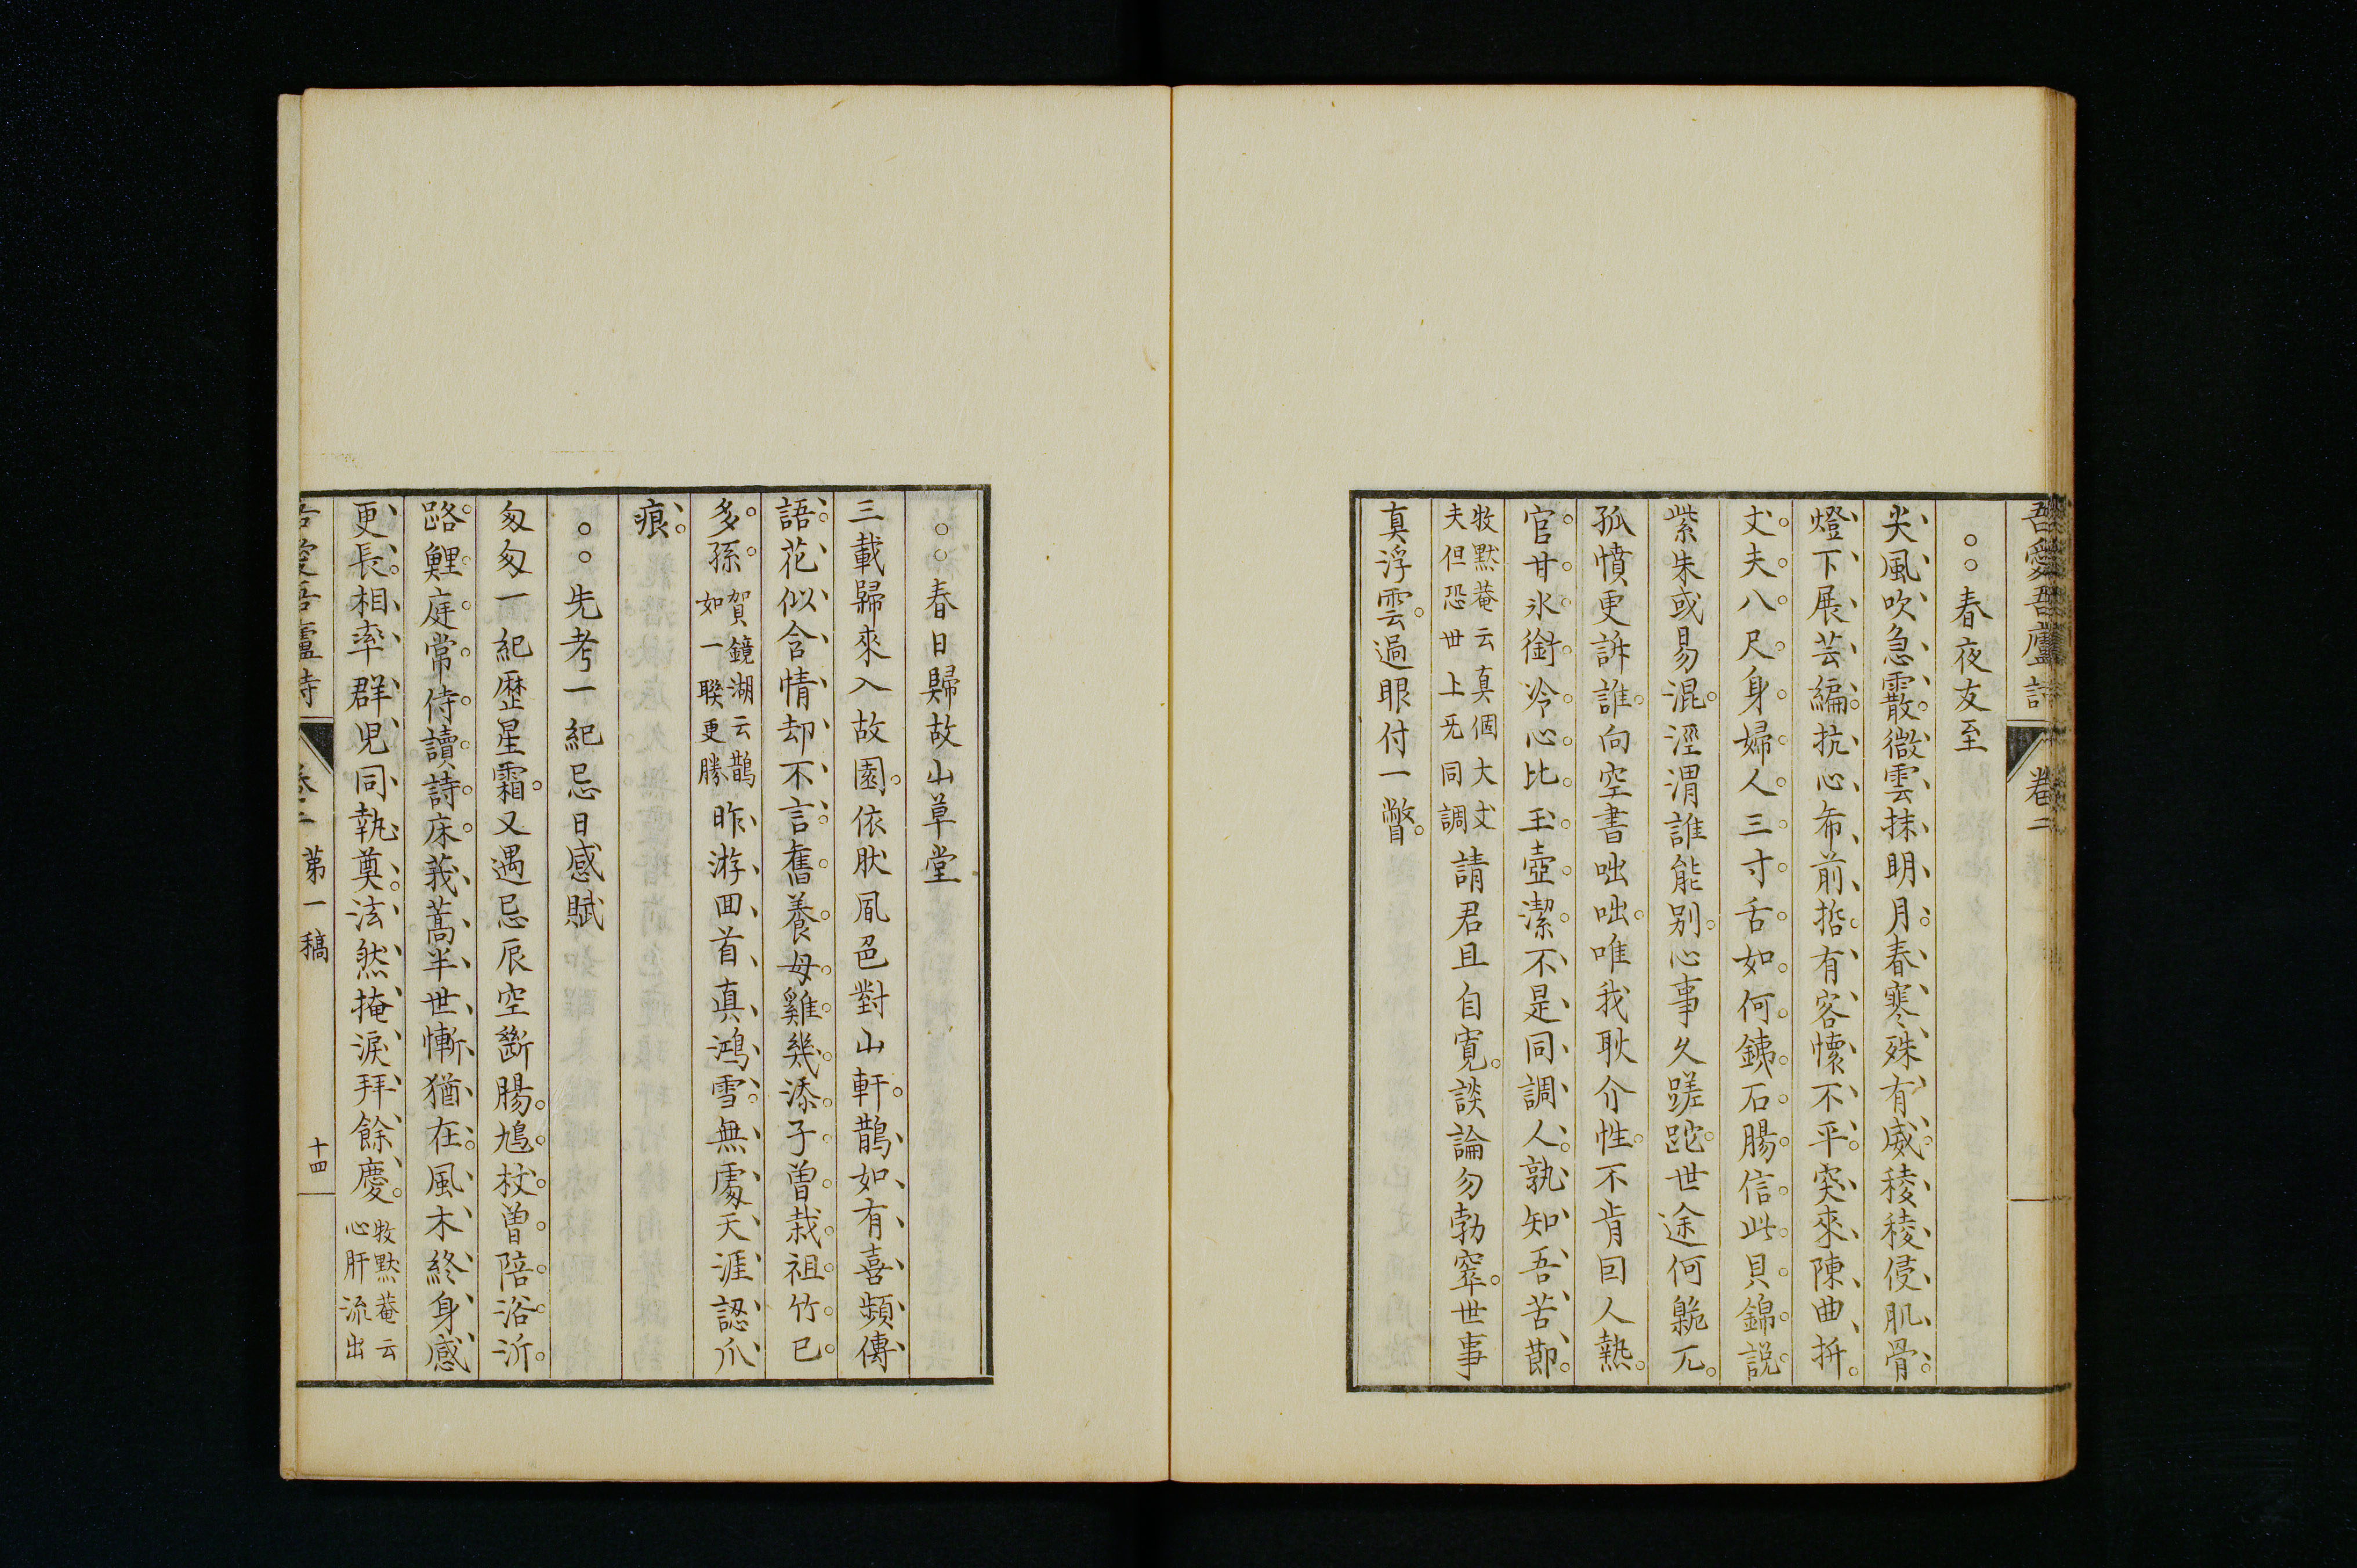 吾愛吾廬詩 卷二
○○春夜友至
尖風吹急霰微雲抹明月春寒殊有威稜稜侵肌骨
燈下展芸編抗心希前哲有客懷不平突來陳曲折
丈夫八尺身婦人三寸舌如何銕石腸信此貝錦説
紫朱或易混涇渭誰能别心事久蹉跎世途何臲兀
孤憤更訴誰向空書咄咄唯我耿介性不肯因人熱
官甘氷銜冷心比玉壺潔不是同調人孰知吾苦節
牧黙菴云真個大丈
夫但恐世上旡同調
請君且自寛談論勿勃窣世事
真浮雲過眼付一瞥
○○春日歸故山草堂
三載歸來入故園依然風色對山軒鵲如有喜頻傳
語花似含情却不言舊養母雞幾添子曾栽祖竹已
多孫
賀鏡湖云鵲
如一聯更勝
昨游回首真鴻雪無處天涯認爪
痕
○○先考一紀忌日感賦
匆匆一紀歴星霜又遇忌辰空斷腸鳩杖曾陪浴沂
路鯉庭常侍讀詩床莪蒿半世慚猶在風木終身感
更長相率群児同執奠泫然掩淚拜餘慶
牧黙菴云
心肝流出
吾愛吾廬詩 卷二 第一稿 十四